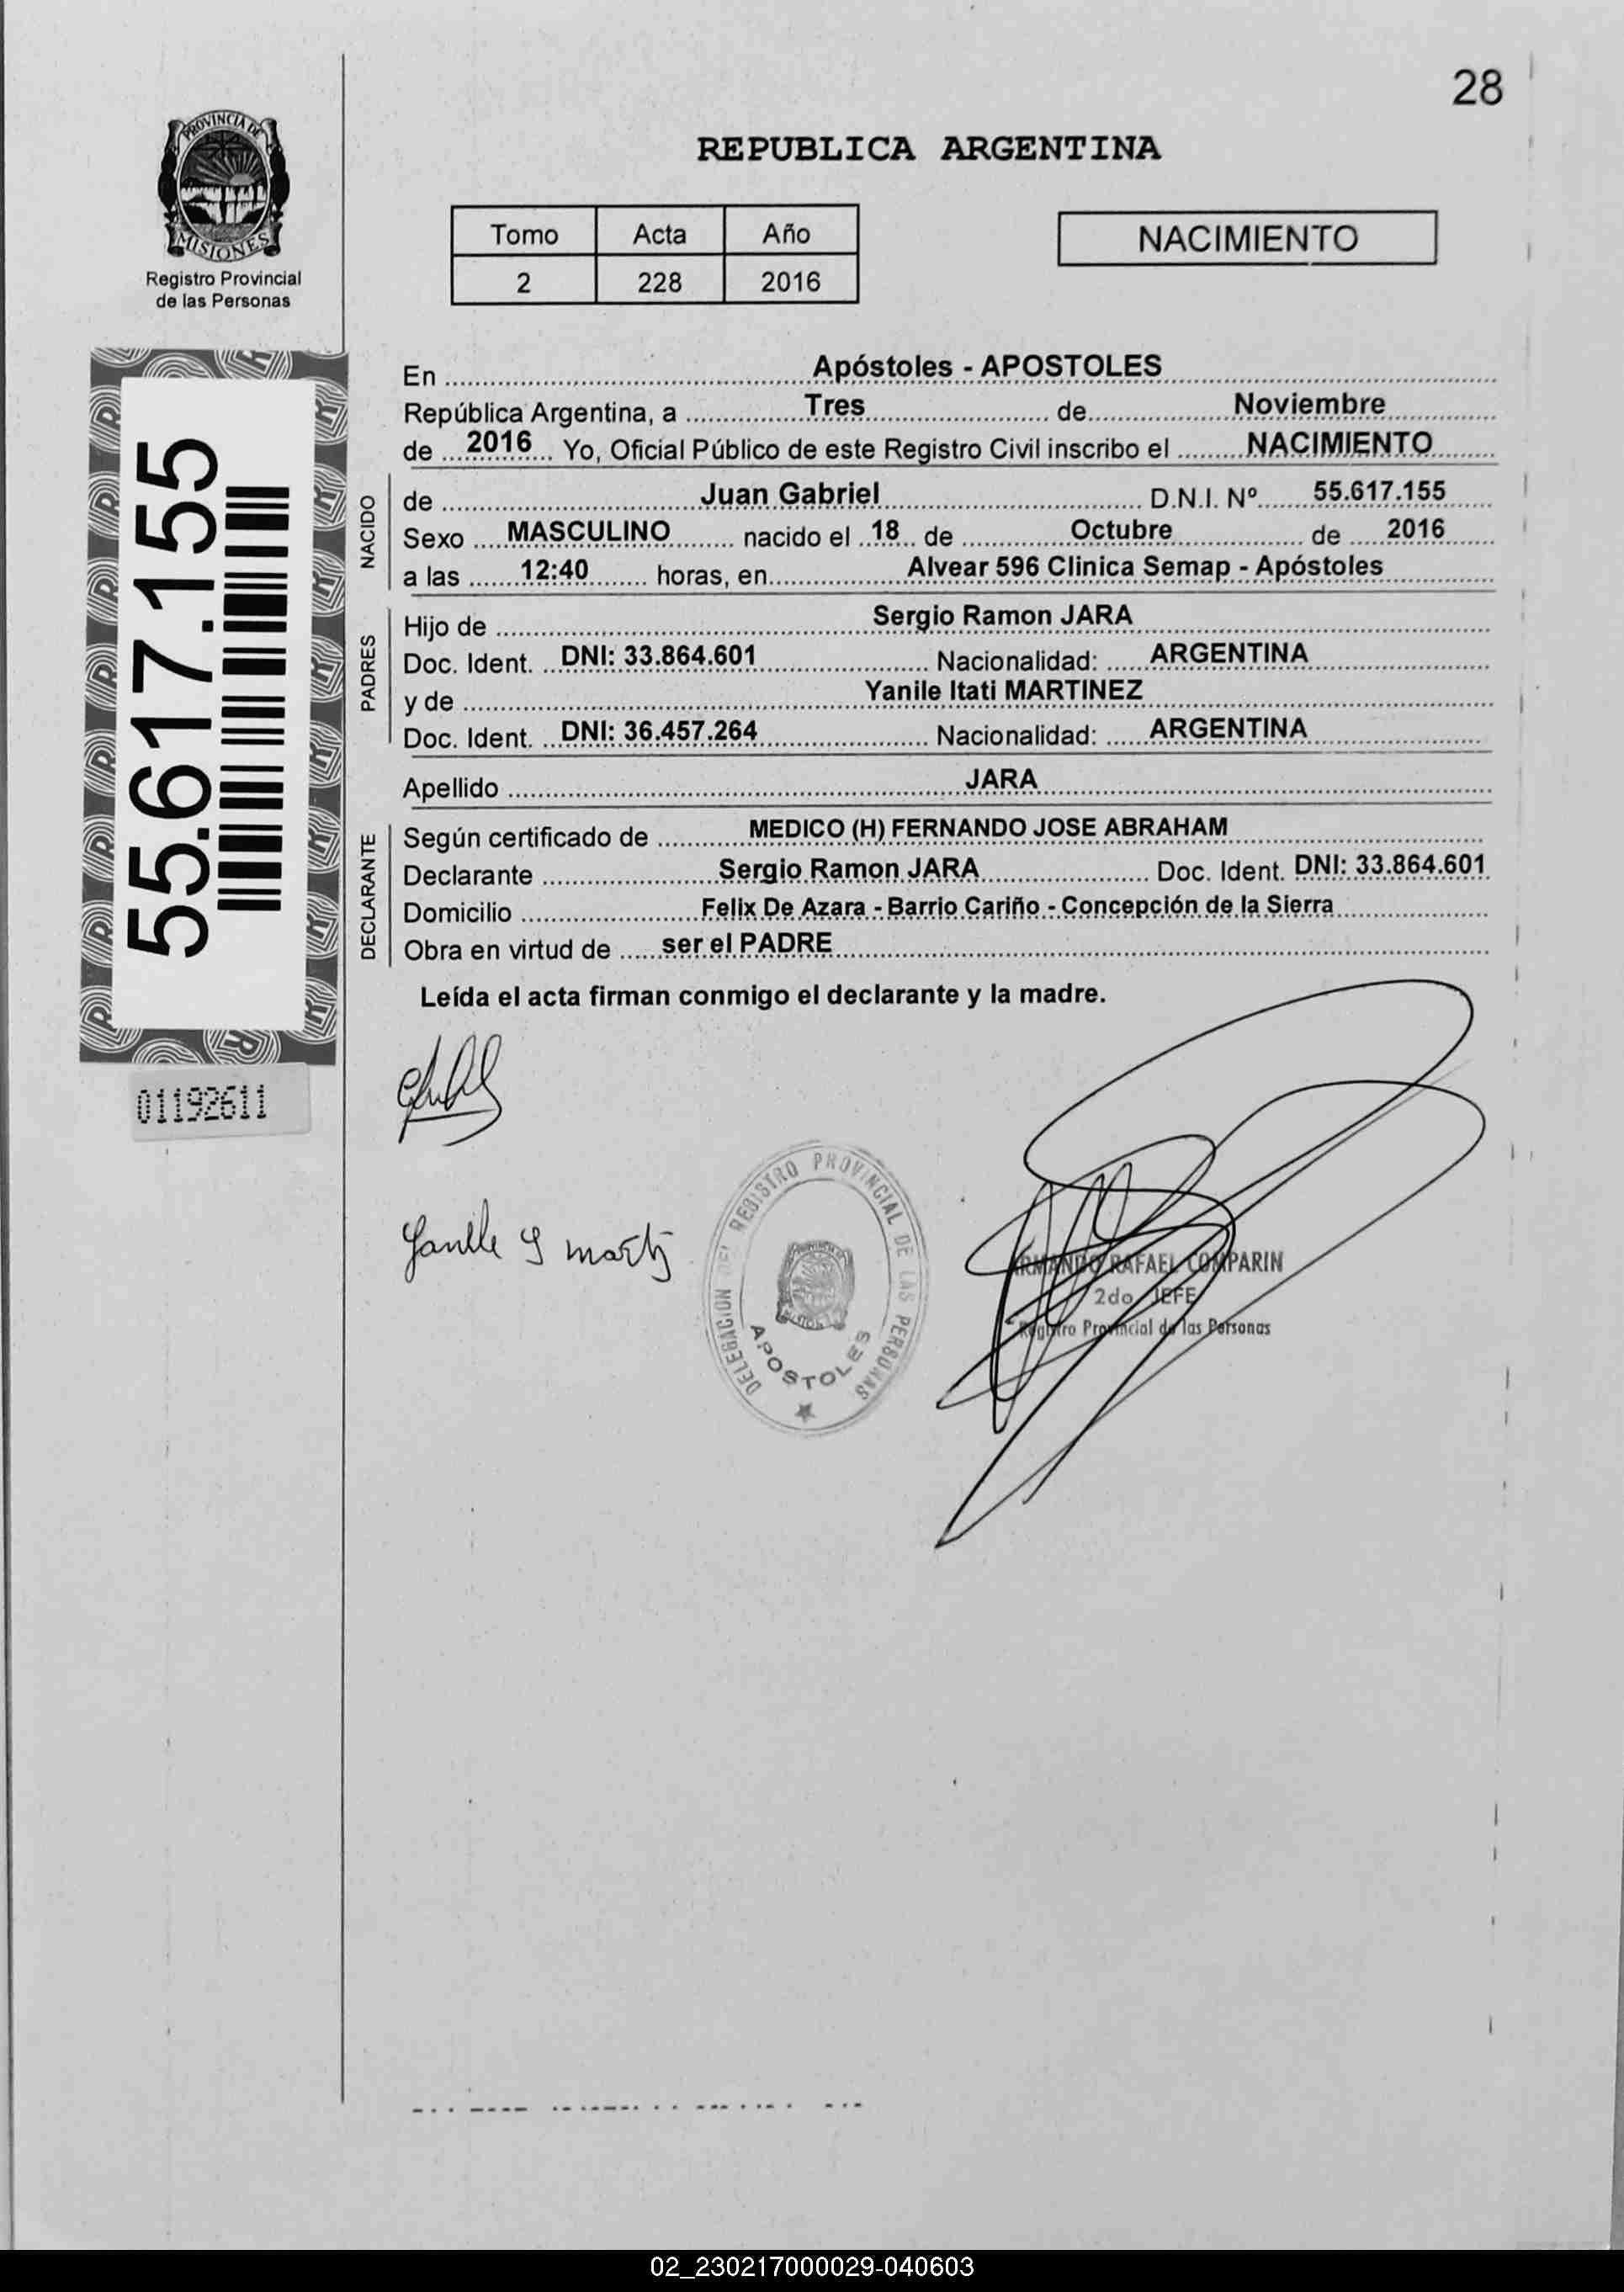 28
PROVINCIA DE
MISIONES
Registro Provincial
de las Personas
REPUBLICA ARGENTINA
Tomo Acta Año
2 228 2016
NACIMIENTO
55.617.155
01192611
En Apóstoles - APOSTOLES
República Argentina, a Tres de Noviembre
de 2016 Yo, Oficial Público de este Registro Civil inscribo el NACIMIENTO
NACIDO
de Juan Gabriel D.N.I. Nº 55.617.155
Sexo MASCULINO nacido el 18 de Octubre de 2016
a las 12:40 horas, en Alvear 596 Clinica Semap - Apóstoles
PADRES
Hijo de Sergio Ramon JARA
Doc. Ident. DNI: 33.864.601 Nacionalidad: ARGENTINA
y de Yanile Itati MARTINEZ
Doc. Ident. DNI: 36.457.264 Nacionalidad: ARGENTINA
Apellido JARA
DECLARANTE
Según certificado de MEDICO (H) FERNANDO JOSE ABRAHAM
Declarante Sergio Ramon JARA Doc. Ident. DNI: 33.864.601
Domicilio Felix De Azara - Barrio Cariño - Concepción de la Sierra
Obra en virtud de ser el PADRE
Leída el acta firman conmigo el declarante y la madre.
DELEGACION DEL REGISTRO PROVINCIAL DE LAS PERSONAS
APOSTOLES
ARMANDO RAFAEL COMPARIN
2do JEFE
Registro Provincial de las Personas
02_230217000029-040603